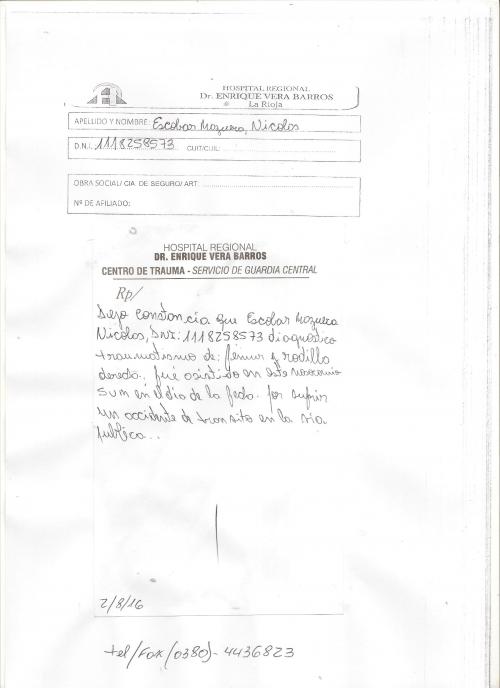 HOSPITAL REGIONAL
Dr. ENRIQUE VERA BARROS
La Rioja
APELLIDO Y NOMBRE: Escobar Mozuera, Nicolos
D.N.I. 1118258573 CUIT/CUIL:
OBRA SOCIAL/ CIA. DE SEGURO/ ART:
Nº DE AFILIADO:
HOSPITAL REGIONAL
DR. ENRIQUE VERA BARROS
CENTRO DE TRAUMA - SERVICIO DE GUARDIA CENTRAL
Rp/
Dejo constancia que Escobar Mozuera
Nicolos, DNI: 1118258573 diagnostico
traumatismo de: fémur y rodilla
derecha, fué asistido en este nosocomio
en el dia de la fecha. por sufrir
un accidente de transito en la via
publica..
2/8/16
tel/Fax (0380)- 4436823